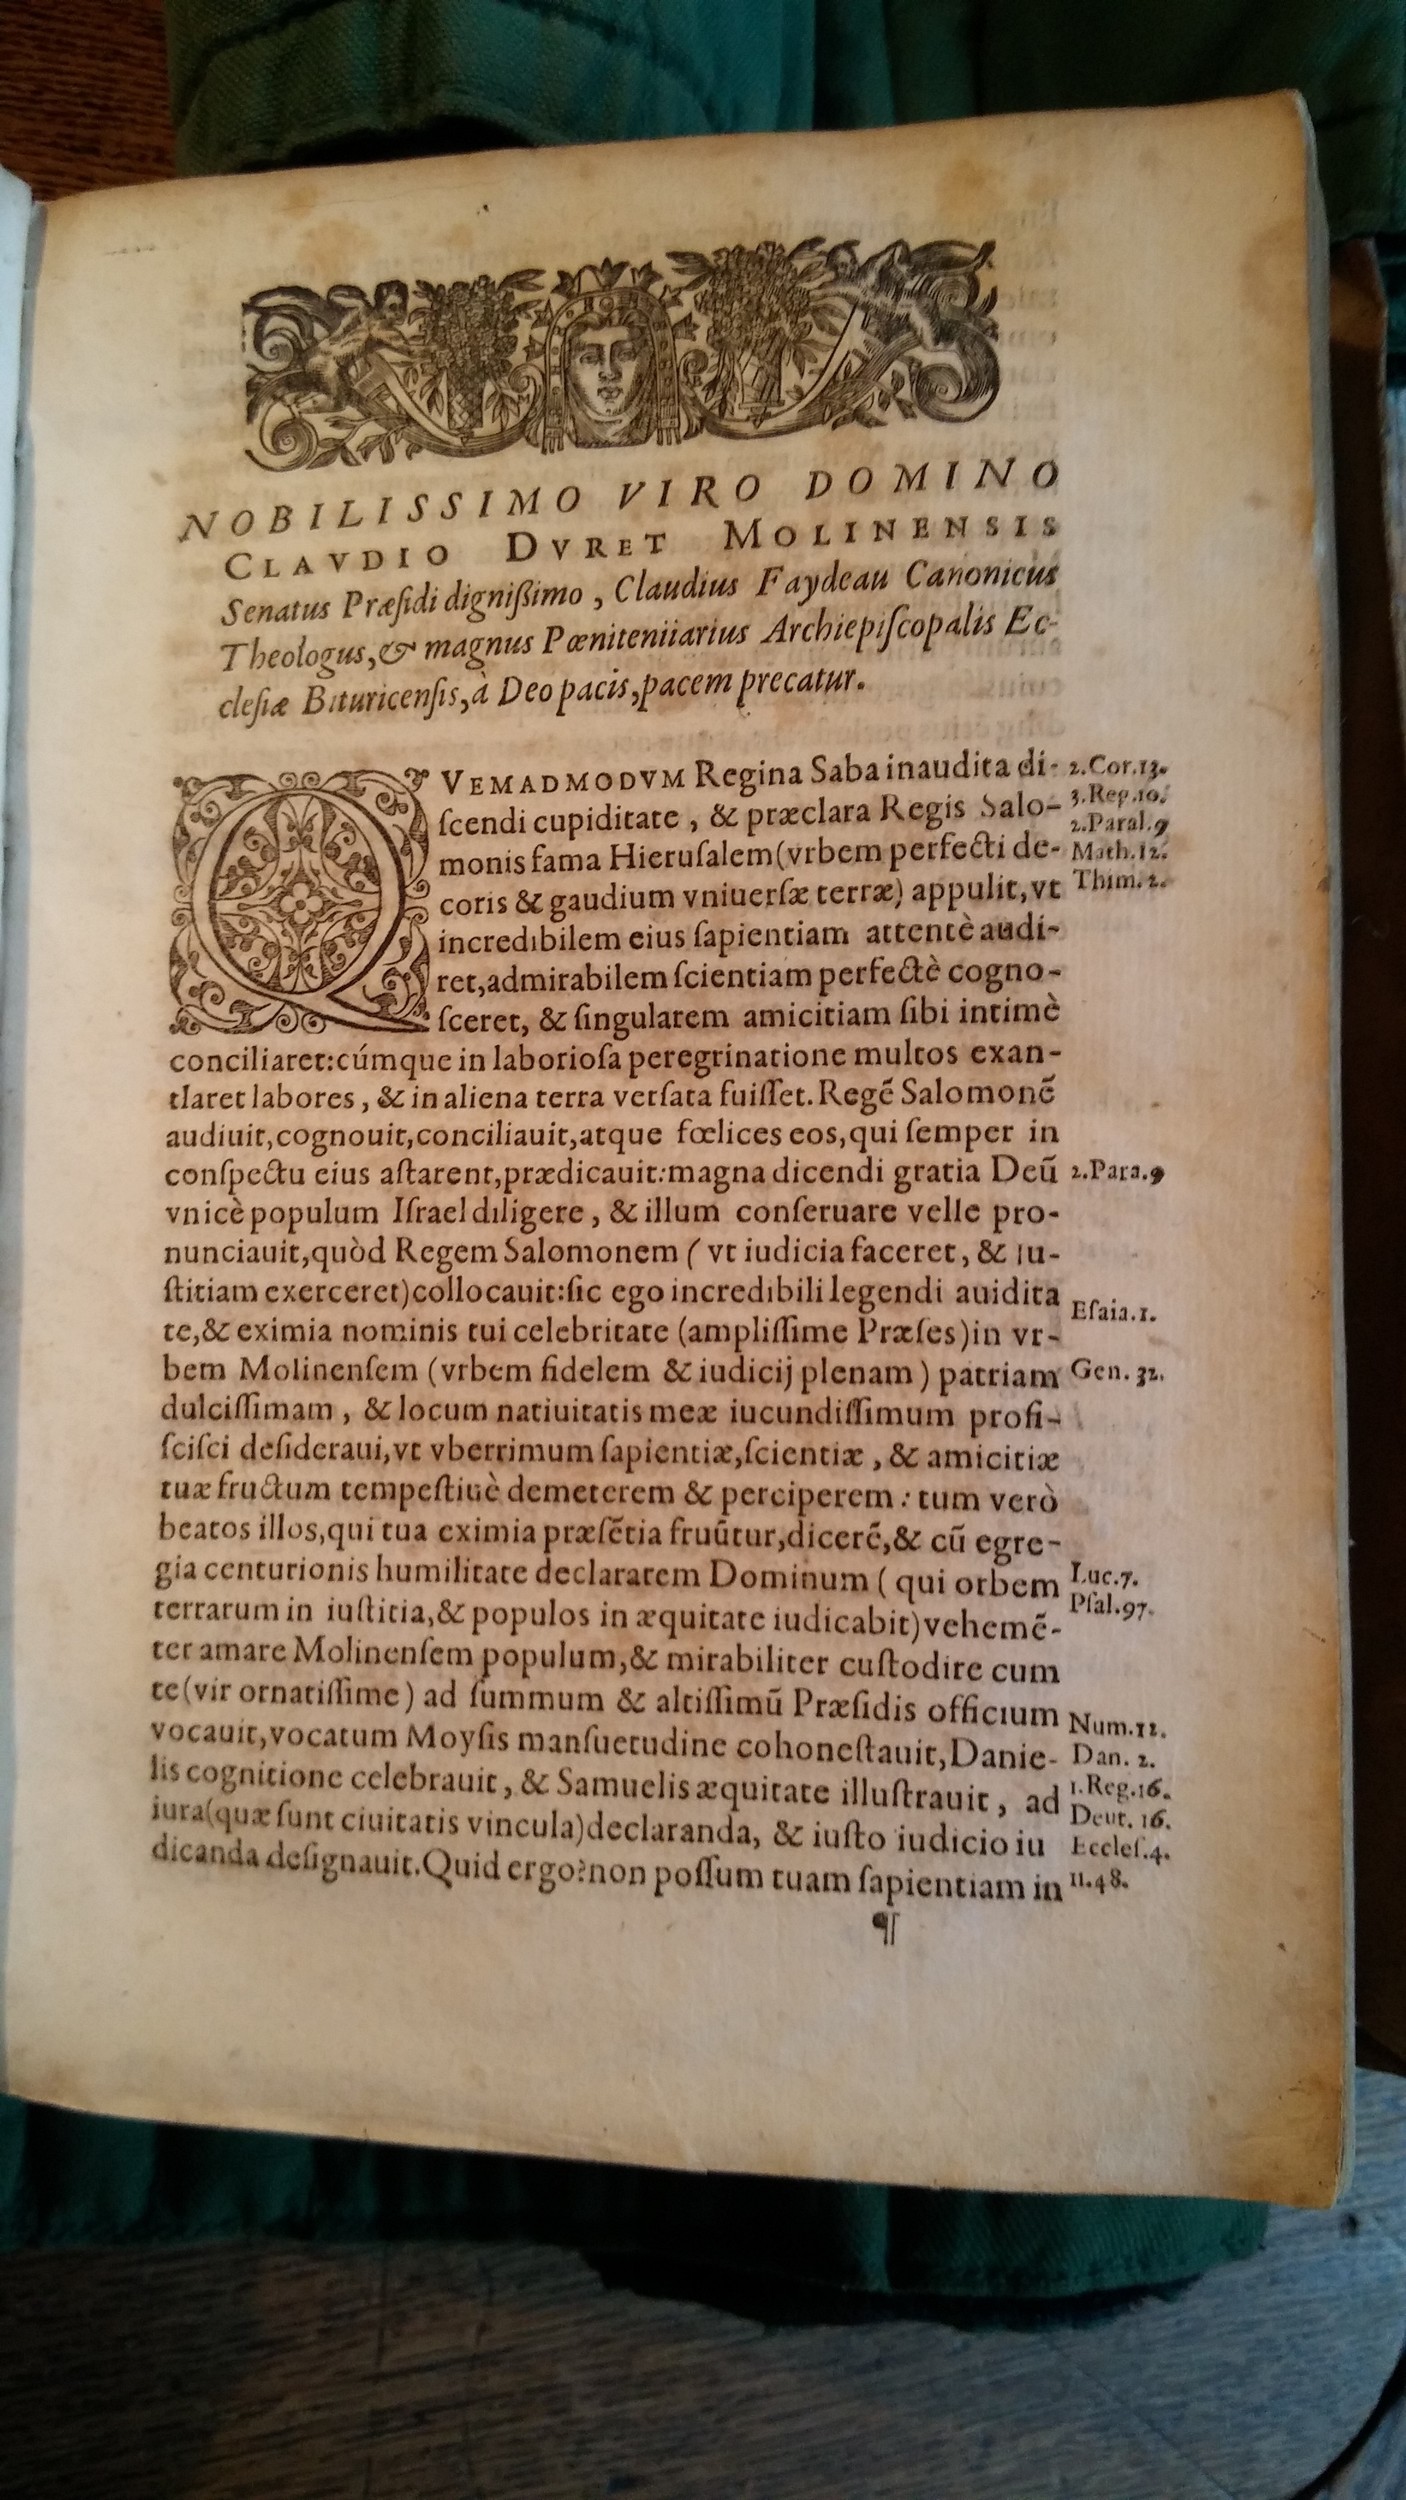 NOBILISSIMO VIRO DOMINO
CLAVDIO DVRET MOLINENSIS
Senatus Præſidi digniſſimo, Claudius Faydeau Canonicus
Theologus, & magnus Pœniteniiarius Archiepiſcopalis Ec-
cleſiæ Bituricenſis, à Deo pacis, pacem precatur.
QVEMADMODVM Regina Saba inaudita di-
ſcendi cupiditate, & præclara Regis Salo-
monis fama Hieruſalem (vrbem perfecti de-
coris & gaudium vniuerſæ terræ) appulit, vt
incredibilem eius ſapientiam attentè audi-
ret, admirabilem ſcientiam perfectè cogno-
ſceret, & ſingularem amicitiam ſibi intimè
conciliaret: cúmque in laborioſa peregrinatione multos exan-
tlaret labores, & in aliena terra verſata fuiſſet. Regẽ Salomonẽ
audiuit, cognouit, conciliauit, atque fœlices eos, qui ſemper in
conſpectu eius aſtarent, prædicauit: magna dicendi gratia Deũ
vnicè populum Iſrael diligere, & illum conſeruare velle pro-
nunciauit, quòd Regem Salomonem (vt iudicia faceret, & iu-
ſtitiam exerceret) collocauit: ſic ego incredibili legendi auidita
te, & eximia nominis tui celebritate (ampliſſime Præſes) in vr-
bem Molinenſem (vrbem fidelem & iudicij plenam) patriam
dulciſſimam, & locum natiuitatis meæ iucundiſſimum profi-
ſciſci deſideraui, vt vberrimum ſapientiæ, ſcientiæ, & amicitiæ
tuæ fructum tempeſtiuè demeterem & perciperem: tum verò
beatos illos, qui tua eximia præſẽtia fruũtur, dicerẽ, & cũ egre-
gia centurionis humilitate declararem Dominum (qui orbem
terrarum in iuſtitia, & populos in æquitate iudicabit) vehemẽ-
ter amare Molinenſem populum, & mirabiliter cuſtodire cum
te (vir ornatiſſime) ad ſummum & altiſſimũ Præſidis officium
vocauit, vocatum Moyſis manſuetudine cohoneſtauit, Danie-
lis cognitione celebrauit, & Samuelis æquitate illuſtrauit, ad
iura (quæ ſunt ciuitatis vincula) declaranda, & iuſto iudicio iu
dicanda deſignauit. Quid ergo? non poſſum tuam ſapientiam in
¶
2.Cor.13.
3.Reg.10.
2.Paral.9
Math.12.
Thim.2.
2.Para.9
Eſaia.1.
Gen.32.
Luc.7.
Pſal.97.
Num.12.
Dan.2.
1.Reg.16.
Deut.16.
Eccleſ.4.
11.48.